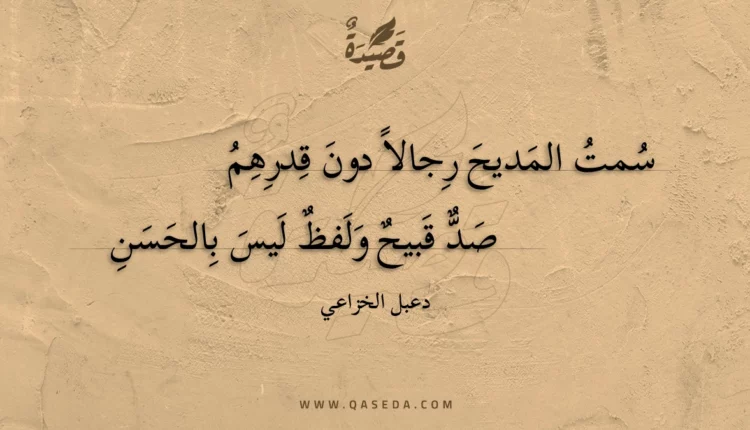 قَصيدَةٌ
سُمتُ المَديحَ رِجالاً دونَ قِدرِهِمُ
صَدٌّ قَبيحٌ وَلَفظٌ لَيسَ بِالحَسَنِ
دعبل الخزاعي
WWW.QASEDA.COM